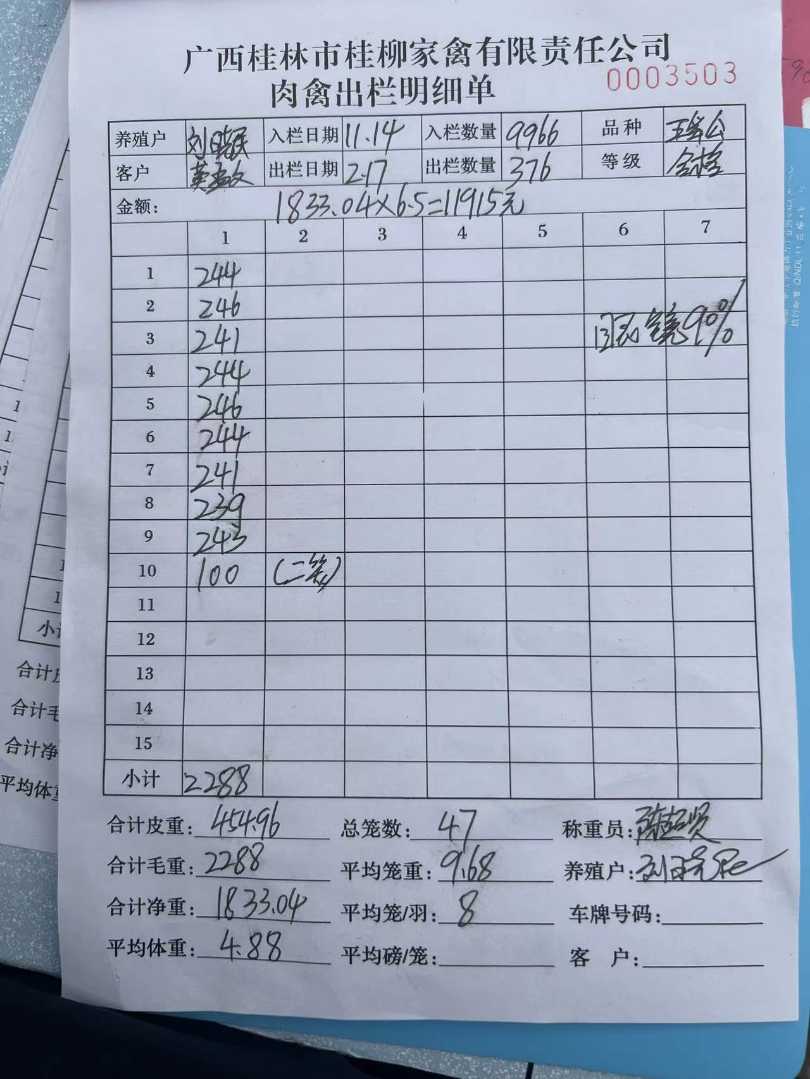 广西桂林市桂柳家禽有限责任公司
肉禽出栏明细单 0003503
养殖户 入栏日期 11.14 入栏数量 9966 品种
客户 出栏日期 2.17 出栏数量 376 等级
金额: 1833.04×6.5=11915元
1 2 3 4 5 6 7
1 244
2 246
3 241 90%
4 244
5 246
6 244
7 241
8 239
9 243
10 100 (二笼)
11
12
13
14
15
小计 2288
合计皮重: 454.96 总笼数: 47 称重员:
合计毛重: 2288 平均笼重: 9.68 养殖户:
合计净重: 1833.04 平均笼/羽: 8 车牌号码:
平均体重: 4.88 平均磅/笼: 客 户: